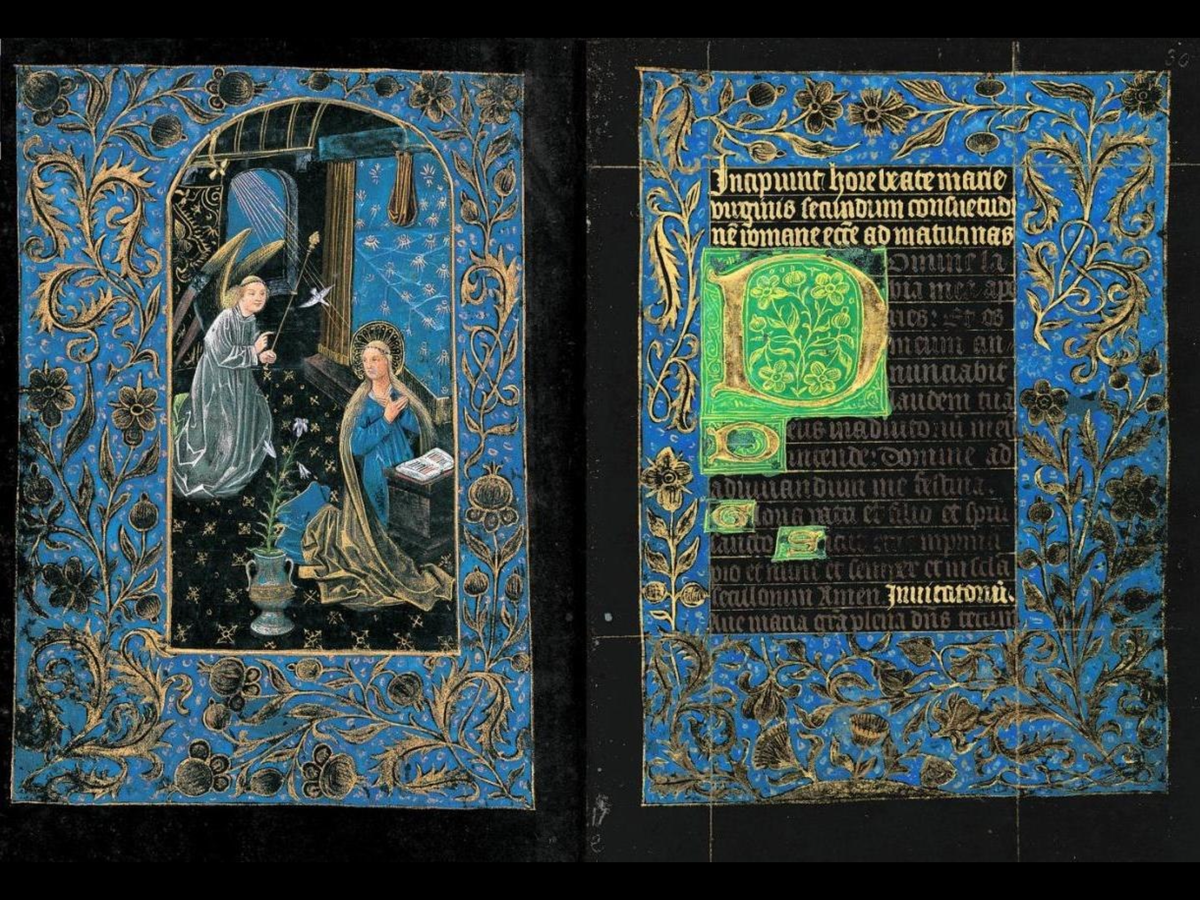 Incipiunt hore beate marie
virginis secundum consuetudi
nē romane ecc̄e ad matutinas
Domine la
bia mea ap
ries: Et os
meum an
nunciabit
laudem tuā
Deus in adiutoriū meū
intende: Domine ad
adiuuandum me festina.
Gloria patri et filio et spiri
sancto Sicut erat in
pio et nunc et semper et in secla
seculorum Amen Inuitatoriū.
Aue maria grā plena dns tecum